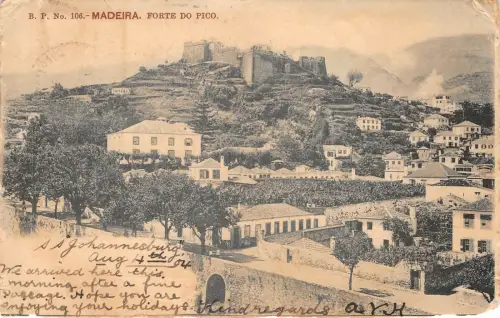 B. P. No. 106.- MADEIRA. FORTE DO PICO.
SS Johannesburg
Aug 4th 04
We arrived here this
morning after a fine
passage. Hope you are
enjoying your holidays. Kind regards